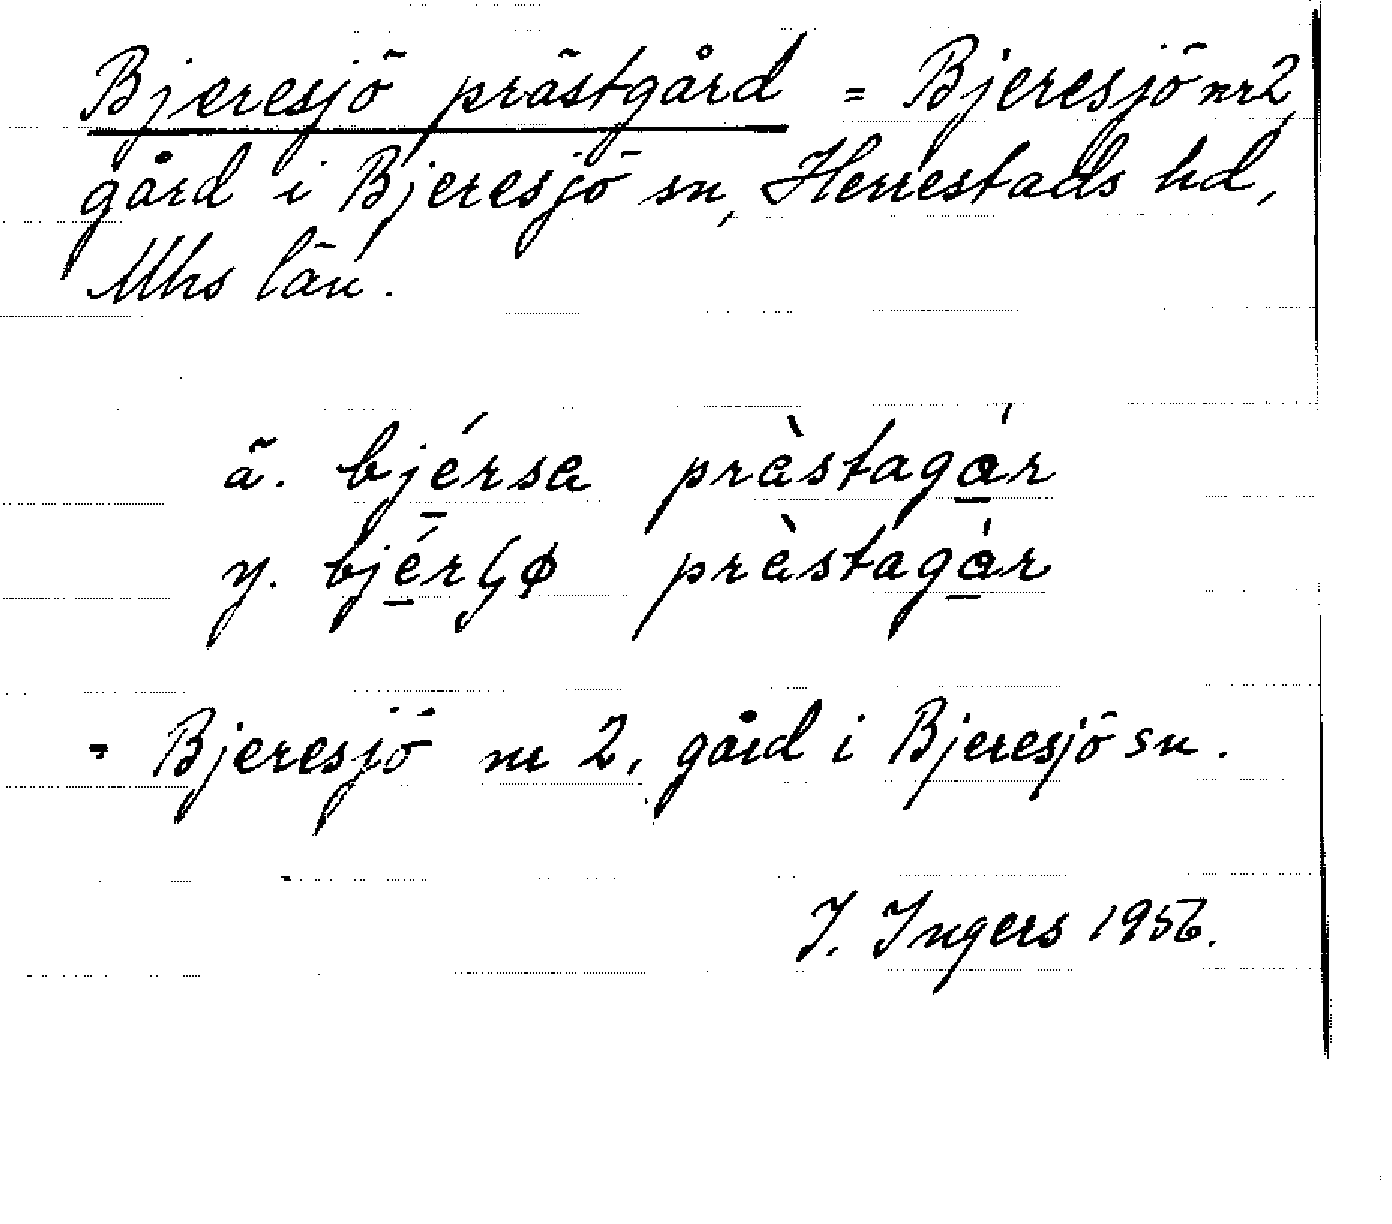 Bjeresjö prästgård = Bjeresjö nr 2,
gård i Bjeresjö sn, Herrestads hd,
Mhs län.
ä. bjé̱rsa pràstagá̱r
y. bjé̱rʃɸ pràstagá̱r
= Bjeresjö nr 2, gård i Bjeresjö sn.
I. Ingers 1956.